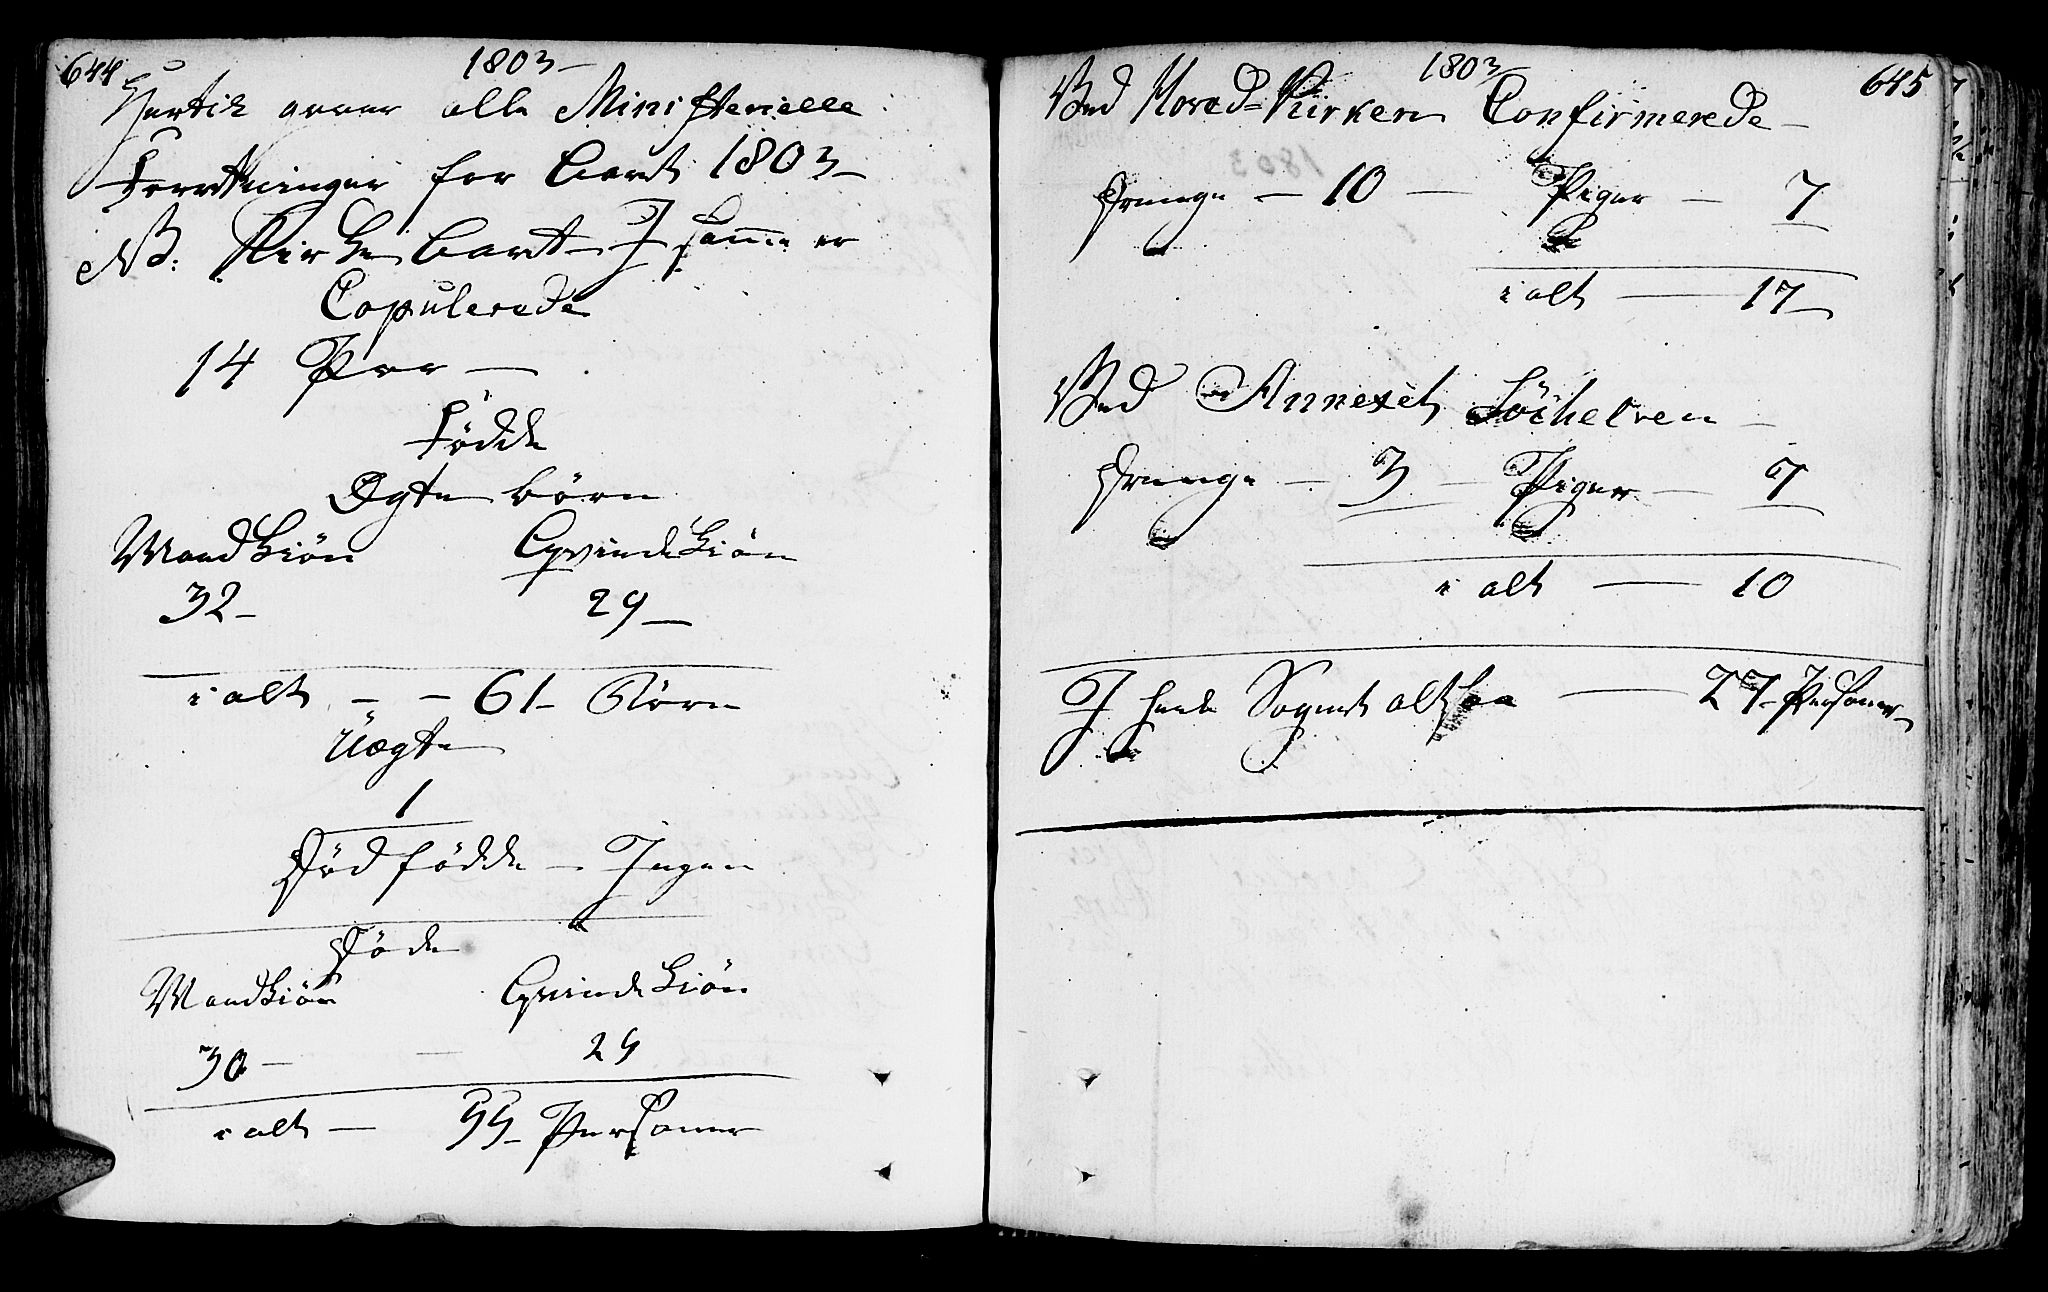 644
1803
over alle Ministerielle
Forretninger for Aaret 1803
NB. Kirke Aaret I samme er
Copulerede
14 Par
Födde
Ægte börn
Mandkiön Qvindekiön
32 29
i alt 61 Börn
Uægte
1
Död födde Ingen
Döde
Mandkiön Qvindekiön
30 25
i alt 55 Personer
1803
645
Ved Hoved-Kirken Confirmerede
Drenge 10 Piger 7
i alt 17
Ved Annexet
Drenge 3 Piger 7
i alt 10
I heele Sognet altsaa 27 Personer